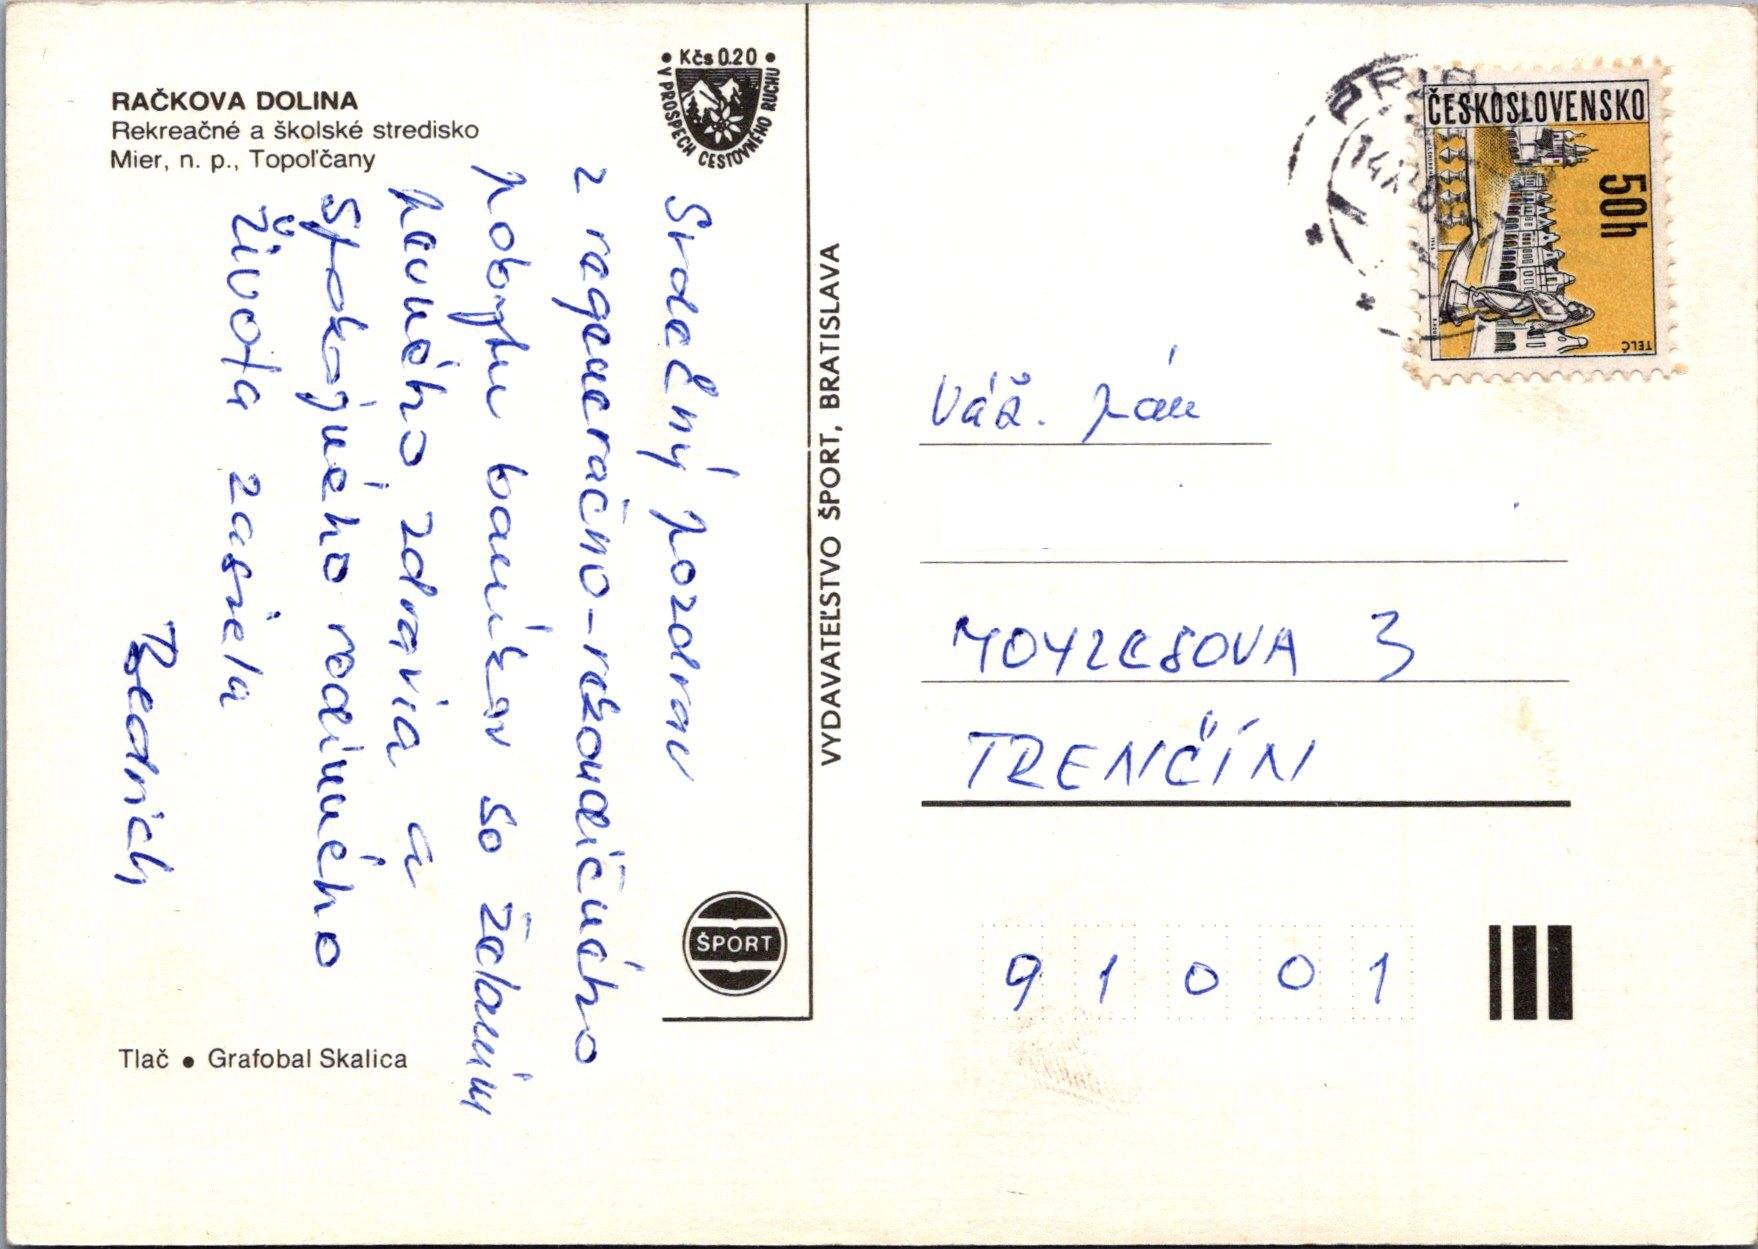 RAČKOVA DOLINA
Rekreačné a školské stredisko
Mier, n. p., Topoľčany
• Kčs 0.20 •
V PROSPECH CESTOVNÉHO RUCHU
Srdečný pozdrav
z regeneračno-rekondičného
pobytu baníkov so želaním
pevného zdravia a
spokojného rodinného
života zasiela
Bedrich
ŠPORT
Tlač • Grafobal Skalica
VYDAVATEĽSTVO ŠPORT, BRATISLAVA
ČESKOSLOVENSKO
50h
TELČ
Váž. pán
MOYZESOVA 3
TRENČÍN
91001